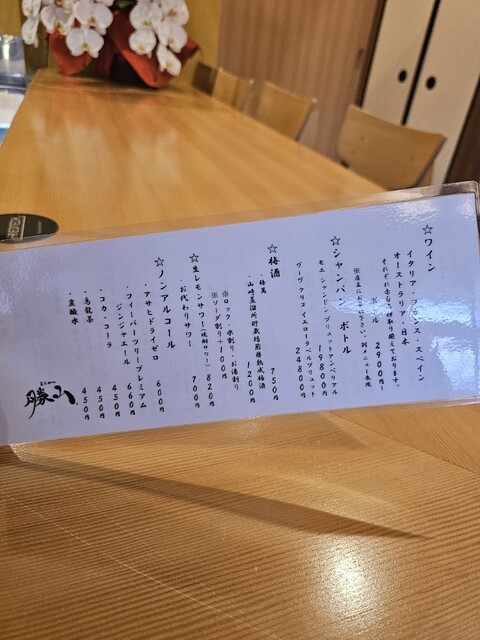 ☆ワイン
イタリア・フランス・スペイン
オーストラリア・日本
それぞれ赤白
取り揃えております。
ボトル 2900円~
※店主にお尋ね下さい。別メニュー表
☆シャンパン ボトル
モエ・シャンドンブリュットアンペリアル
19800円
ヴーヴクリコ イエローラベルブリュット
24800円
☆梅酒
・梅萬 750円
・山崎蒸溜所貯蔵焙煎樽熟成梅酒
1200円
※ロック・水割り・お湯割り
※ソーダ割り+100円
☆生レモンサワー(
サワー) 820円
・お代わりサワー 700円
☆ノンアルコール
・アサヒドライゼロ 600円
・フィーバーツリープレミアム
ジンジャエール 660円
・コカ・コーラ 450円
・烏龍茶 450円
・炭酸水 450円
勝山